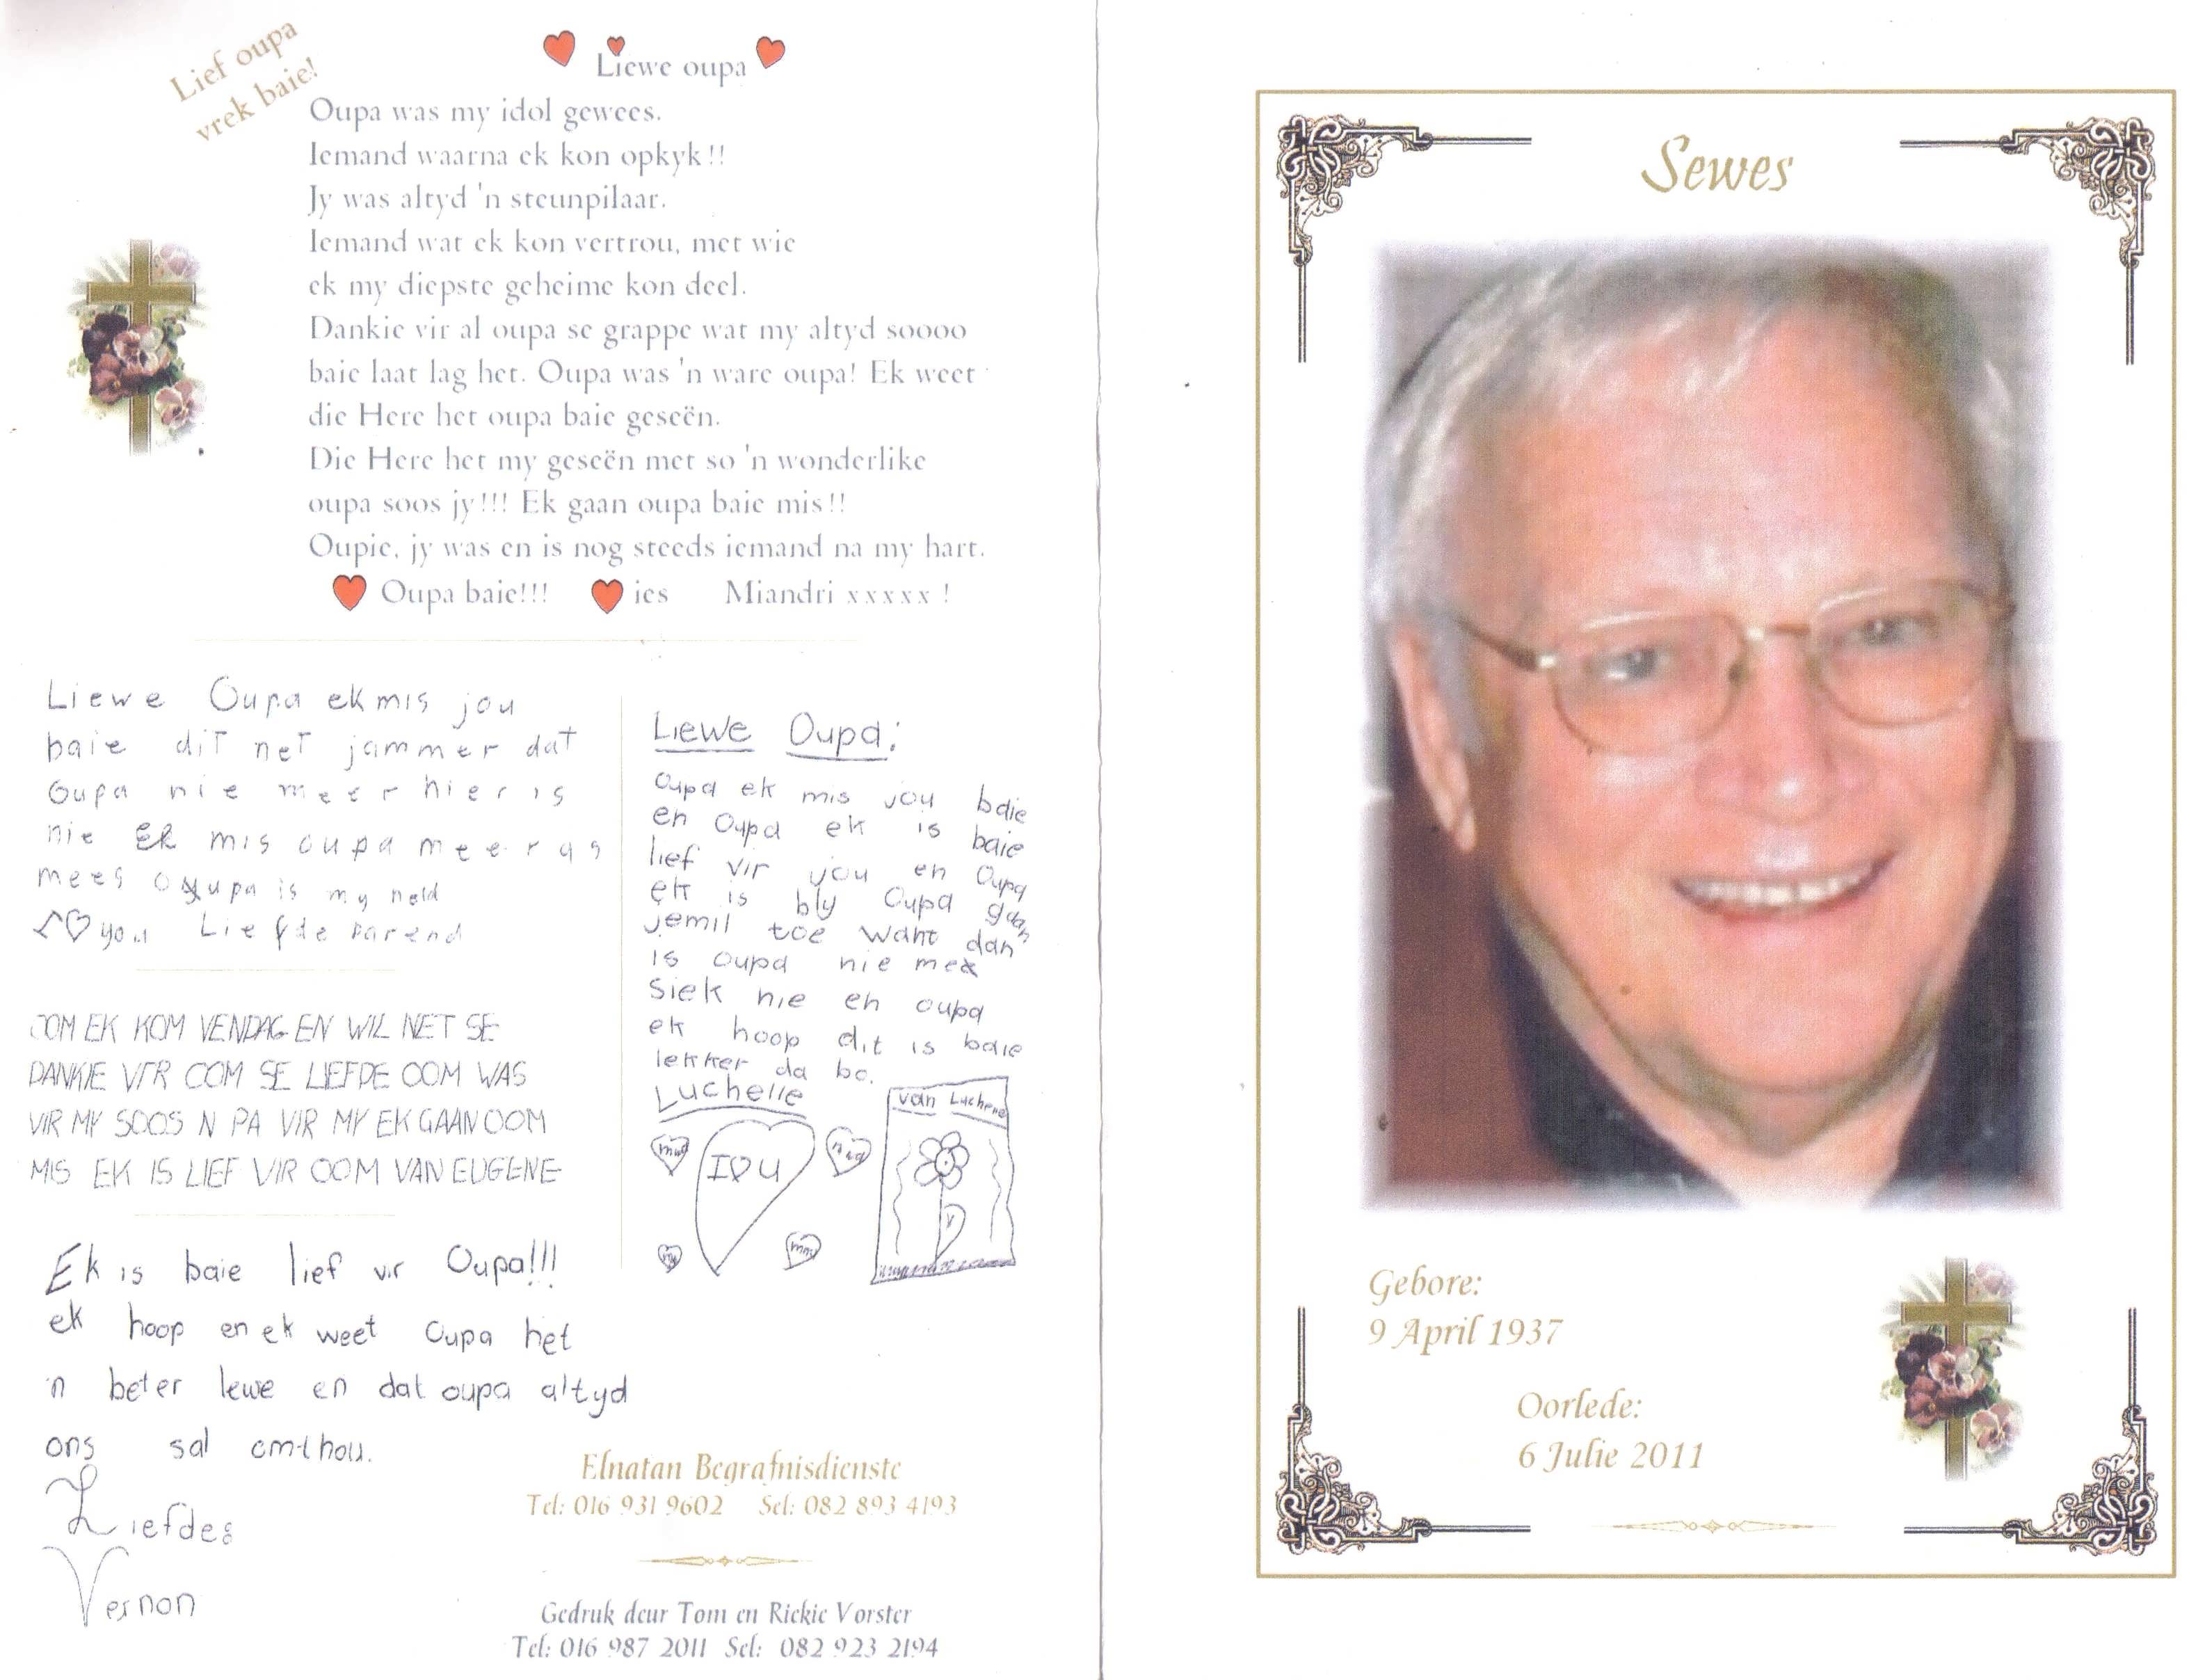 Lief oupa
vrek baie!
Liewe oupa
Oupa was my idol gewees.
Iemand waarna ek kon opkyk!!
Jy was altyd 'n steunpilaar.
Iemand wat ek kon vertrou, met wie
ek my diepste geheime kon deel.
Dankie vir al oupa se grappe wat my altyd soooo
baie laat lag het. Oupa was 'n ware oupa! Ek weet
die Here het oupa baie geseën.
Die Here het my geseën met so 'n wonderlike
oupa soos jy!!! Ek gaan oupa baie mis!!
Oupie, jy was en is nog steeds iemand na my hart.
Oupa baie!!! ies Miandri xxxxx !
Liewe Oupa ek mis jou
baie dit net jammer dat
Oupa nie meer hier is
nie Ek mis oupa meer as
mees oupa is my held
I ♡ you Liefde
OOM EK KOM VENDAG EN WIL NET SE
DANKIE VIR OOM SE LIEFDE OOM WAS
VIR MY SOOS N PA VIR MY EK GAAN OOM
MIS EK IS LIEF VIR OOM VAN EUGENE
Ek is baie lief vir Oupa!!!
ek hoop en ek weet Oupa het
'n beter lewe en dat oupa altyd
ons sal onthou.
Liefdes
Vernon
Liewe Oupa:
Oupa ek mis jou baie
en Oupa ek is baie
lief vir jou en Oupa
ek is bly Oupa gaan
jemil toe want dan
is oupa nie mee
siek nie en oupa
ek hoop dit is baie
lekker da bo.
Luchelle
van Luchelle
I ♡ U
Elnatan Begrafnisdienste
Tel: 016 931 9602 Sel: 082 893 4193
Gedruk deur Tom en Rickie Vorster
Tel: 016 987 2011 Sel: 082 923 2194
Sewes
Gebore:
9 April 1937
Oorlede:
6 Julie 2011